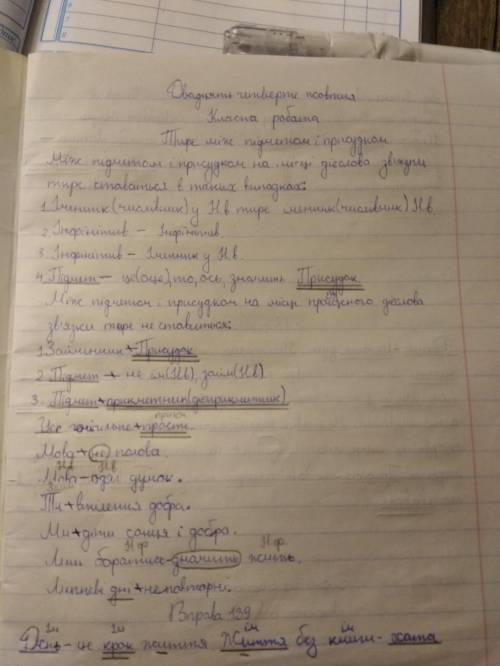 Двадцять четверте жовтня
Класна робота
Тире між підметом і присудком
Між підметом і присудком на місці дієслова звязки
тире ставиться в таких випадках:
1. Іменник (числівник) у Н.в тире іменник (числівник) Н.в.
2. Інфінітив – Інфінітив.
3. Інфінітив – Іменник у Н.в.
4. Підмет – це (оце), то, ось, значить Присудок.
Між підметом і присудком на місці дієслова
звязки тире не ставиться:
1. Займенник + Присудок
2. Підмет + не ім (Н.в), займ (Н.в)
3. Підмет + прикметник (дієприкметник)
прикм
Усе + просте.
Мова + не полова.
Н.в Н.в
Мова – одяг думок.
Ти + втілення добра.
Ми + діти сонця і добра.
Н.ф Н.ф
боротись – значить жить.
Липневі дні + неповторні.
Вправа 139
Ім Ім Ім Ім
День – це крок життя Життя без книги – хата